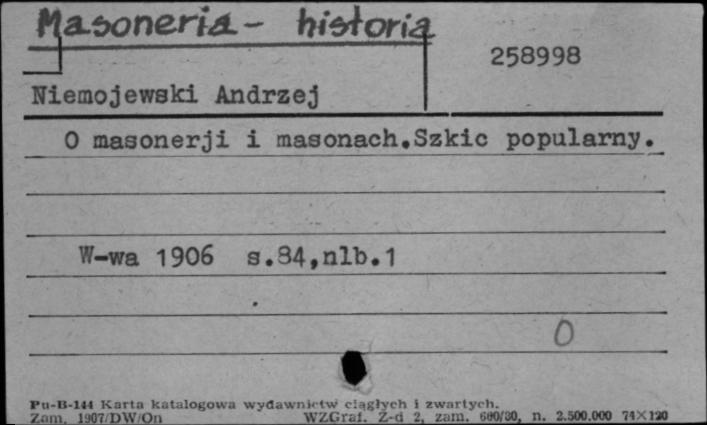 Masoneria - historia
258998
Niemojewski Andrzej
O masonerji i masonach.Szkic popularny.
W-wa 1906 s.84,nlb.1
O
Pu-B-144 Karta katalogowa wydawnictw ciągłych i zwartych.
Zam. 1907/DW/On WZGraf. Z-d 2, zam. 680/80, n. 2.500.000 74×120